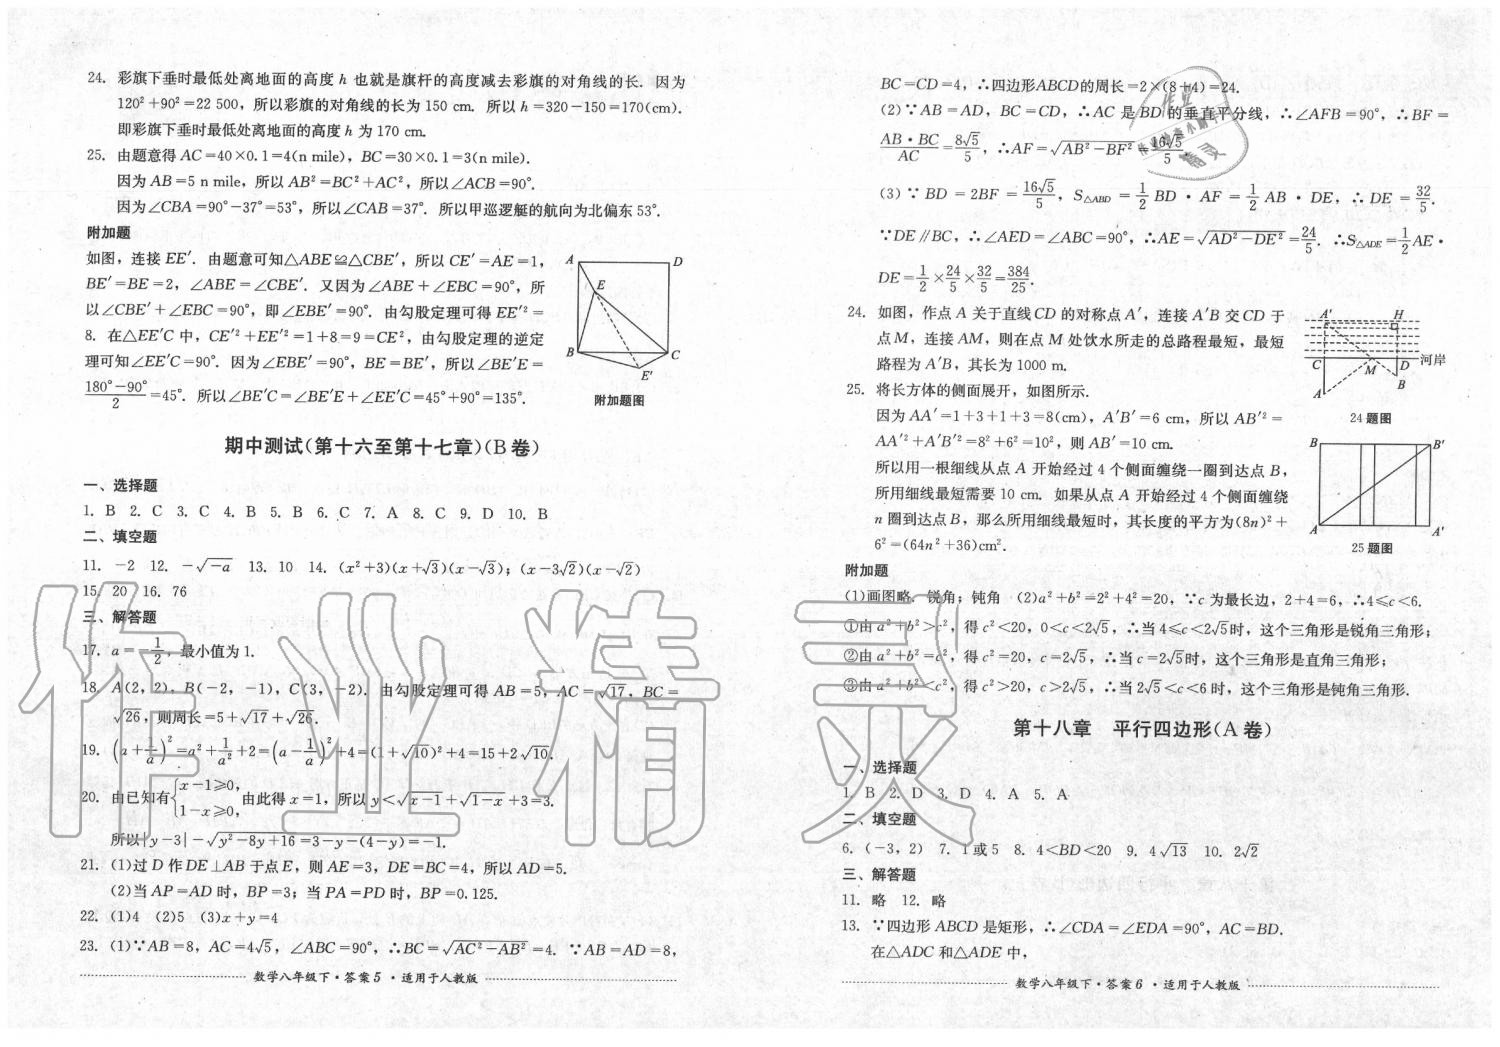 24. 彩旗下垂时最低处离地面的高度 h 也就是旗杆的高度减去彩旗的对角线的长. 因为
120²+90²=22 500, 所以彩旗的对角线的长为 150 cm. 所以 h=320-150=170(cm).
即彩旗下垂时最低处离地面的高度 h 为 170 cm.
25. 由题意得 AC=40×0.1=4(n mile), BC=30×0.1=3(n mile).
因为 AB=5 n mile, 所以 AB²=BC²+AC², 所以∠ACB=90°.
因为∠CBA=90°-37°=53°, 所以∠CAB=37°. 所以甲巡逻艇的航向为北偏东 53°.
附加题
如图, 连接 EE′. 由题意可知△ABE≌△CBE′, 所以 CE′=AE=1,
BE′=BE=2, ∠ABE=∠CBE′. 又因为∠ABE+∠EBC=90°, 所
以∠CBE′+∠EBC=90°, 即∠EBE′=90°. 由勾股定理可得 EE′²=
8. 在△EE′C 中, CE′²+EE′²=1+8=9=CE², 由勾股定理的逆定
理可知∠EE′C=90°. 因为∠EBE′=90°, BE=BE′, 所以∠BE′E=
(180°-90°)/2=45°. 所以∠BE′C=∠BE′E+∠EE′C=45°+90°=135°.
A D E B C E′
附加题图
期中测试(第十六至第十七章)(B 卷)
一、选择题
1. B 2. C 3. C 4. B 5. B 6. C 7. A 8. C 9. D 10. B
二、填空题
11. -2 12. -√-a 13. 10 14. (x²+3)(x+√3)(x-√3); (x-3√2)(x-√2)
15. 20 16. 76
三、解答题
17. a=-1/2, 最小值为 1.
18. A(2, 2), B(-2, -1), C(3, -2). 由勾股定理可得 AB=5, AC=√17, BC=
√26, 则周长=5+√17+√26.
19. (a+1/a)²=a²+1/a²+2=(a-1/a)²+4=(1+√10)²+4=15+2√10.
20. 由已知有{x-1≥0, 1-x≥0, 由此得 x=1, 所以 y<√x-1+√1-x+3=3.
所以|y-3|-√y²-8y+16=3-y-(4-y)=-1.
21. (1)过 D 作 DE⊥AB 于点 E, 则 AE=3, DE=BC=4, 所以 AD=5.
(2)当 AP=AD 时, BP=3; 当 PA=PD 时, BP=0.125.
22. (1)4 (2)5 (3)x+y=4
23. (1)∵AB=8, AC=4√5, ∠ABC=90°, ∴BC=√AC²-AB²=4. ∵AB=AD=8,
数学八年级下·答案 5 ·适用于人教版
BC=CD=4, ∴四边形ABCD的周长=2×(8+4)=24.
(2)∵AB=AD, BC=CD, ∴AC 是 BD 的垂直平分线, ∴∠AFB=90°, ∴BF=
AB·BC/AC=8√5/5, ∴AF=√AB²-BF²=16√5/5.
(3)∵BD=2BF=16√5/5, S△ABD=1/2 BD·AF=1/2 AB·DE, ∴DE=32/5.
∵DE∥BC, ∴∠AED=∠ABC=90°, ∴AE=√AD²-DE²=24/5. ∴S△ADE=1/2 AE·
DE=1/2×24/5×32/5=384/25.
24. 如图, 作点 A 关于直线 CD 的对称点 A′, 连接 A′B 交 CD 于
点 M, 连接 AM, 则在点 M 处饮水所走的总路程最短, 最短
路程为 A′B, 其长为 1000 m.
A′ H C M D 河岸 B A
24 题图
25. 将长方体的侧面展开, 如图所示.
因为 AA′=1+3+1+3=8(cm), A′B′=6 cm, 所以 AB′²=
AA′²+A′B′²=8²+6²=10², 则 AB′=10 cm.
所以用一根细线从点 A 开始经过 4 个侧面缠绕一圈到达点 B,
所用细线最短需要 10 cm. 如果从点 A 开始经过 4 个侧面缠绕
n 圈到达点 B, 那么所用细线最短时, 其长度的平方为(8n)²+
6²=(64n²+36)cm².
B B′ A A′
25 题图
附加题
(1)画图略. 锐角; 钝角 (2)a²+b²=2²+4²=20, ∵c 为最长边, 2+4=6, ∴4≤c<6.
①由 a²+b²>c², 得 c²<20, 0<c<2√5, ∴当 4≤c<2√5时, 这个三角形是锐角三角形;
②由 a²+b²=c², 得 c²=20, c=2√5, ∴当 c=2√5时, 这个三角形是直角三角形;
③由 a²+b²<c², 得 c²>20, c>2√5, ∴当 2√5<c<6 时, 这个三角形是钝角三角形.
第十八章 平行四边形(A 卷)
一、选择题
1. B 2. D 3. D 4. A 5. A
二、填空题
6. (-3, 2) 7. 1 或 5 8. 4<BD<20 9. 4√13 10. 2√2
三、解答题
11. 略 12. 略
13. ∵四边形 ABCD 是矩形, ∴∠CDA=∠EDA=90°, AC=BD.
在△ADC 和△ADE 中,
数学八年级下·答案 6 ·适用于人教版
作业精灵